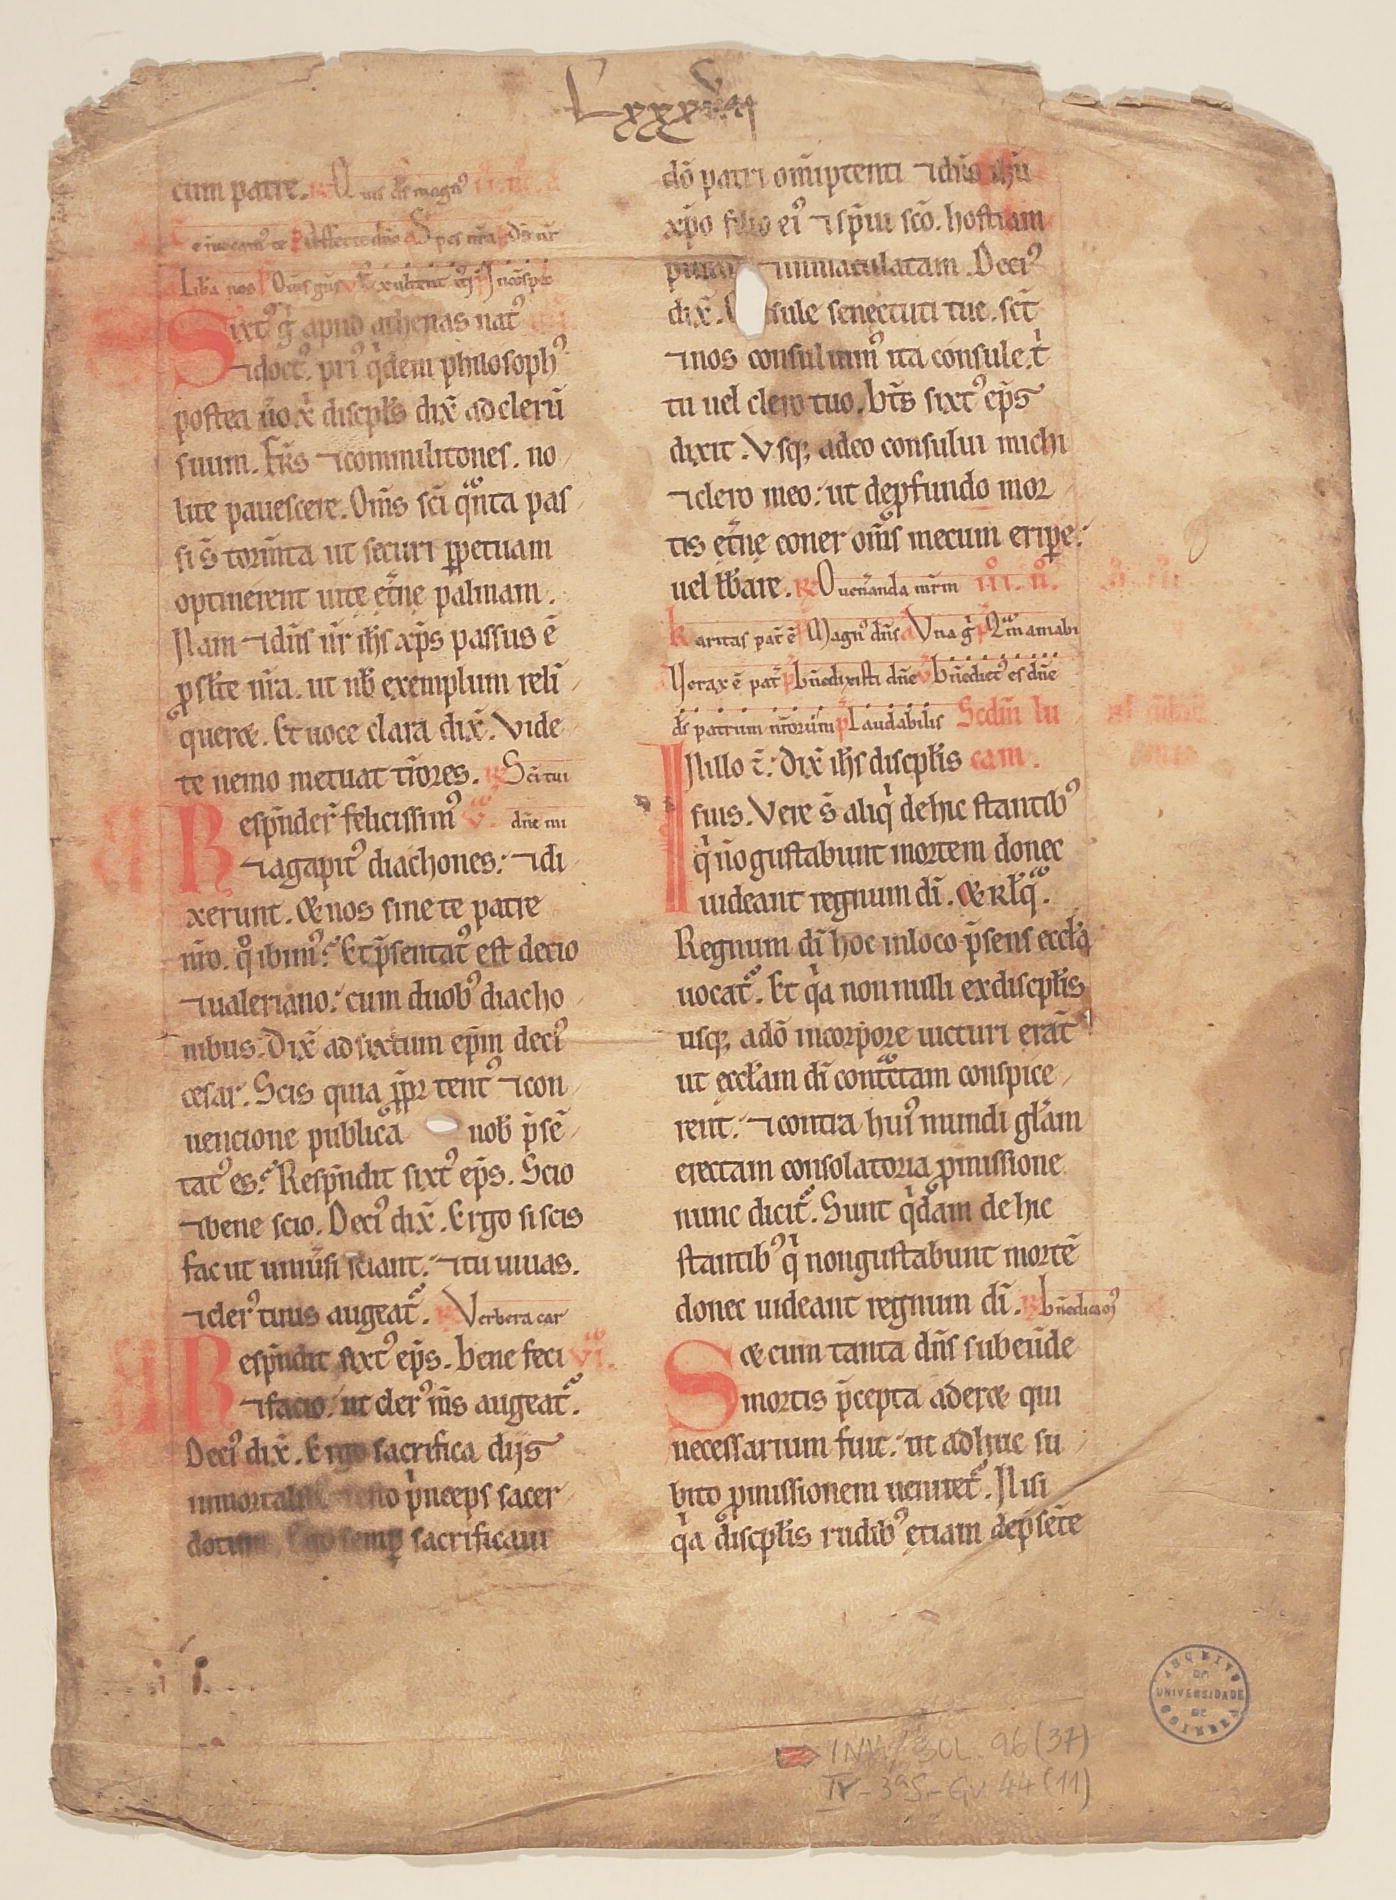 Lxxxviij
cum patre. R Quis ds̄ magn᷒ ii. n̄.
te īuocam᷒ te Spes nr̄a ds̄ nr̄
Libera nos Exultent
Sixt᷒ gͥ apud athenas nat᷒
⁊ doct᷒. pri᷒ qͥdem philosoph᷒
postea u̾o x̄ discpl̄s dix̄ ad clerū
suum. Fr̄s ⁊ commilitones. no
lite pauescere. Om̄s sc̄i qͣnta pas
si s̄ torm̄ta ut securi ꝑpetuam
optinerent uite et̾ne palmam.
Nam ⁊ dn̄s nr̄ ih̄s xp̄s passus ē
ꝓ sal̄te nr̄a. ut nob̄ exemplum reli
queret. Et uoce clara dix̄. Vide
te nemo metuat tīores. R Sc̄i tui
Respn̄der̄ felicissim᷒ v. dn̄e mi
⁊ agapit᷒ diachones: ⁊ di
xerunt. & nos sine te patre
nr̄o. qͦ ibim᷒? Et p̄sentat᷒ est decio
⁊ ualeriano: cum duob᷒ diacho
nibus. Dix̄ ad sixtum ep̄m deci᷒
cesar. Scis quia ꝓpt̾ tent᷒ ⁊ con
uencione publica nob̄ p̄sē
tat᷒ es? Respn̄dit sixt᷒ ep̄s. Scio
⁊ bene scio. Deci᷒ dix̄. Ergo si scis
fac ut uniu̾si sciant: ⁊ tu uiuas.
⁊ cler᷒ tuus augeat᷑. R Verbera car
Respn̄dit sixt᷒ ep̄s. bene feci vi.
⁊ facio. ut cler᷒ m̄s augeat᷑.
Deci᷒ dix̄. Ergo sacrifica dijs
inmortalib pͥnceps sacer
dotum. Ego semꝑ sacrificaui
dō patri omīptenti ⁊ dn̄o ih̄u
xp̄o filio ei᷒ ⁊ sp̄iu sc̄o. hostiam
puram ⁊ inmaculatam. Deci᷒
dix̄. Consule senectuti tue. sc̄t
⁊ nos consulimus᷒ ita consule. t̾
tu uel clero tuo. bt̄s sixt᷒ ep̄s
dixit. Vsq; adeo consului michi
⁊ clero meo: ut de ꝓfundo mor
tis et̾ne coner om̄s mecum eripe:
uel lib̾are. R O uen̾anda mr̄m iii. n̄.
Karitas pat̾ ē Magn᷒ dn̄s Vna gͥ Qͣm amabi
Verax ē pat̾ bn̄edixisti dn̄e bn̄edict᷒ es dn̄e
ds̄ patrum nr̄orum Laudabilis Scdm̄ lu
IN illo t̄: Dix̄ ih̄s discplīs cam.
suis. Vere s̄ aliqͥ de hic stantib᷒
qͥ nō gustabunt mortem donec
uideant regnum dī. & rl̄qͣ.
Regnum dī hoc in loco p̄sens eccl̄a
uocat᷑. Et qͥa non nulli ex discplīs
usq; adō in corpore uicturi erāt
ut eccl̄am dī conͣtctam conspice
rent: ⁊ contra hui᷒ mundi gl̄am
erectam consolatoria ꝓmissione
nunc dicit᷑. Sunt qͥdam de hic
stantib᷒ qͥ non gustabunt mortē
donec uideant regnum dī. R bn̄edicam᷒
S & cum tanta dn̄s subeūde
mortis p̄cepta aderet qui
necessarium fuit: ut ad huc su
bito ꝓmissionem ueniret᷑. Nisi
qͥa discplīs rudib᷒ etiam de p̄sēte
ARQUIVO
DA
UNIVERSIDADE
DE
COIMBRA
INV/SOL. 96 (37)
IV-3ªS-Gv 44 (11)